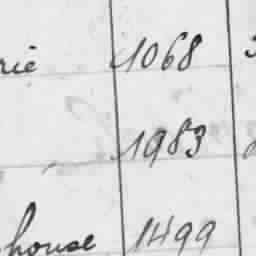 rie 1068
1983
house 1499